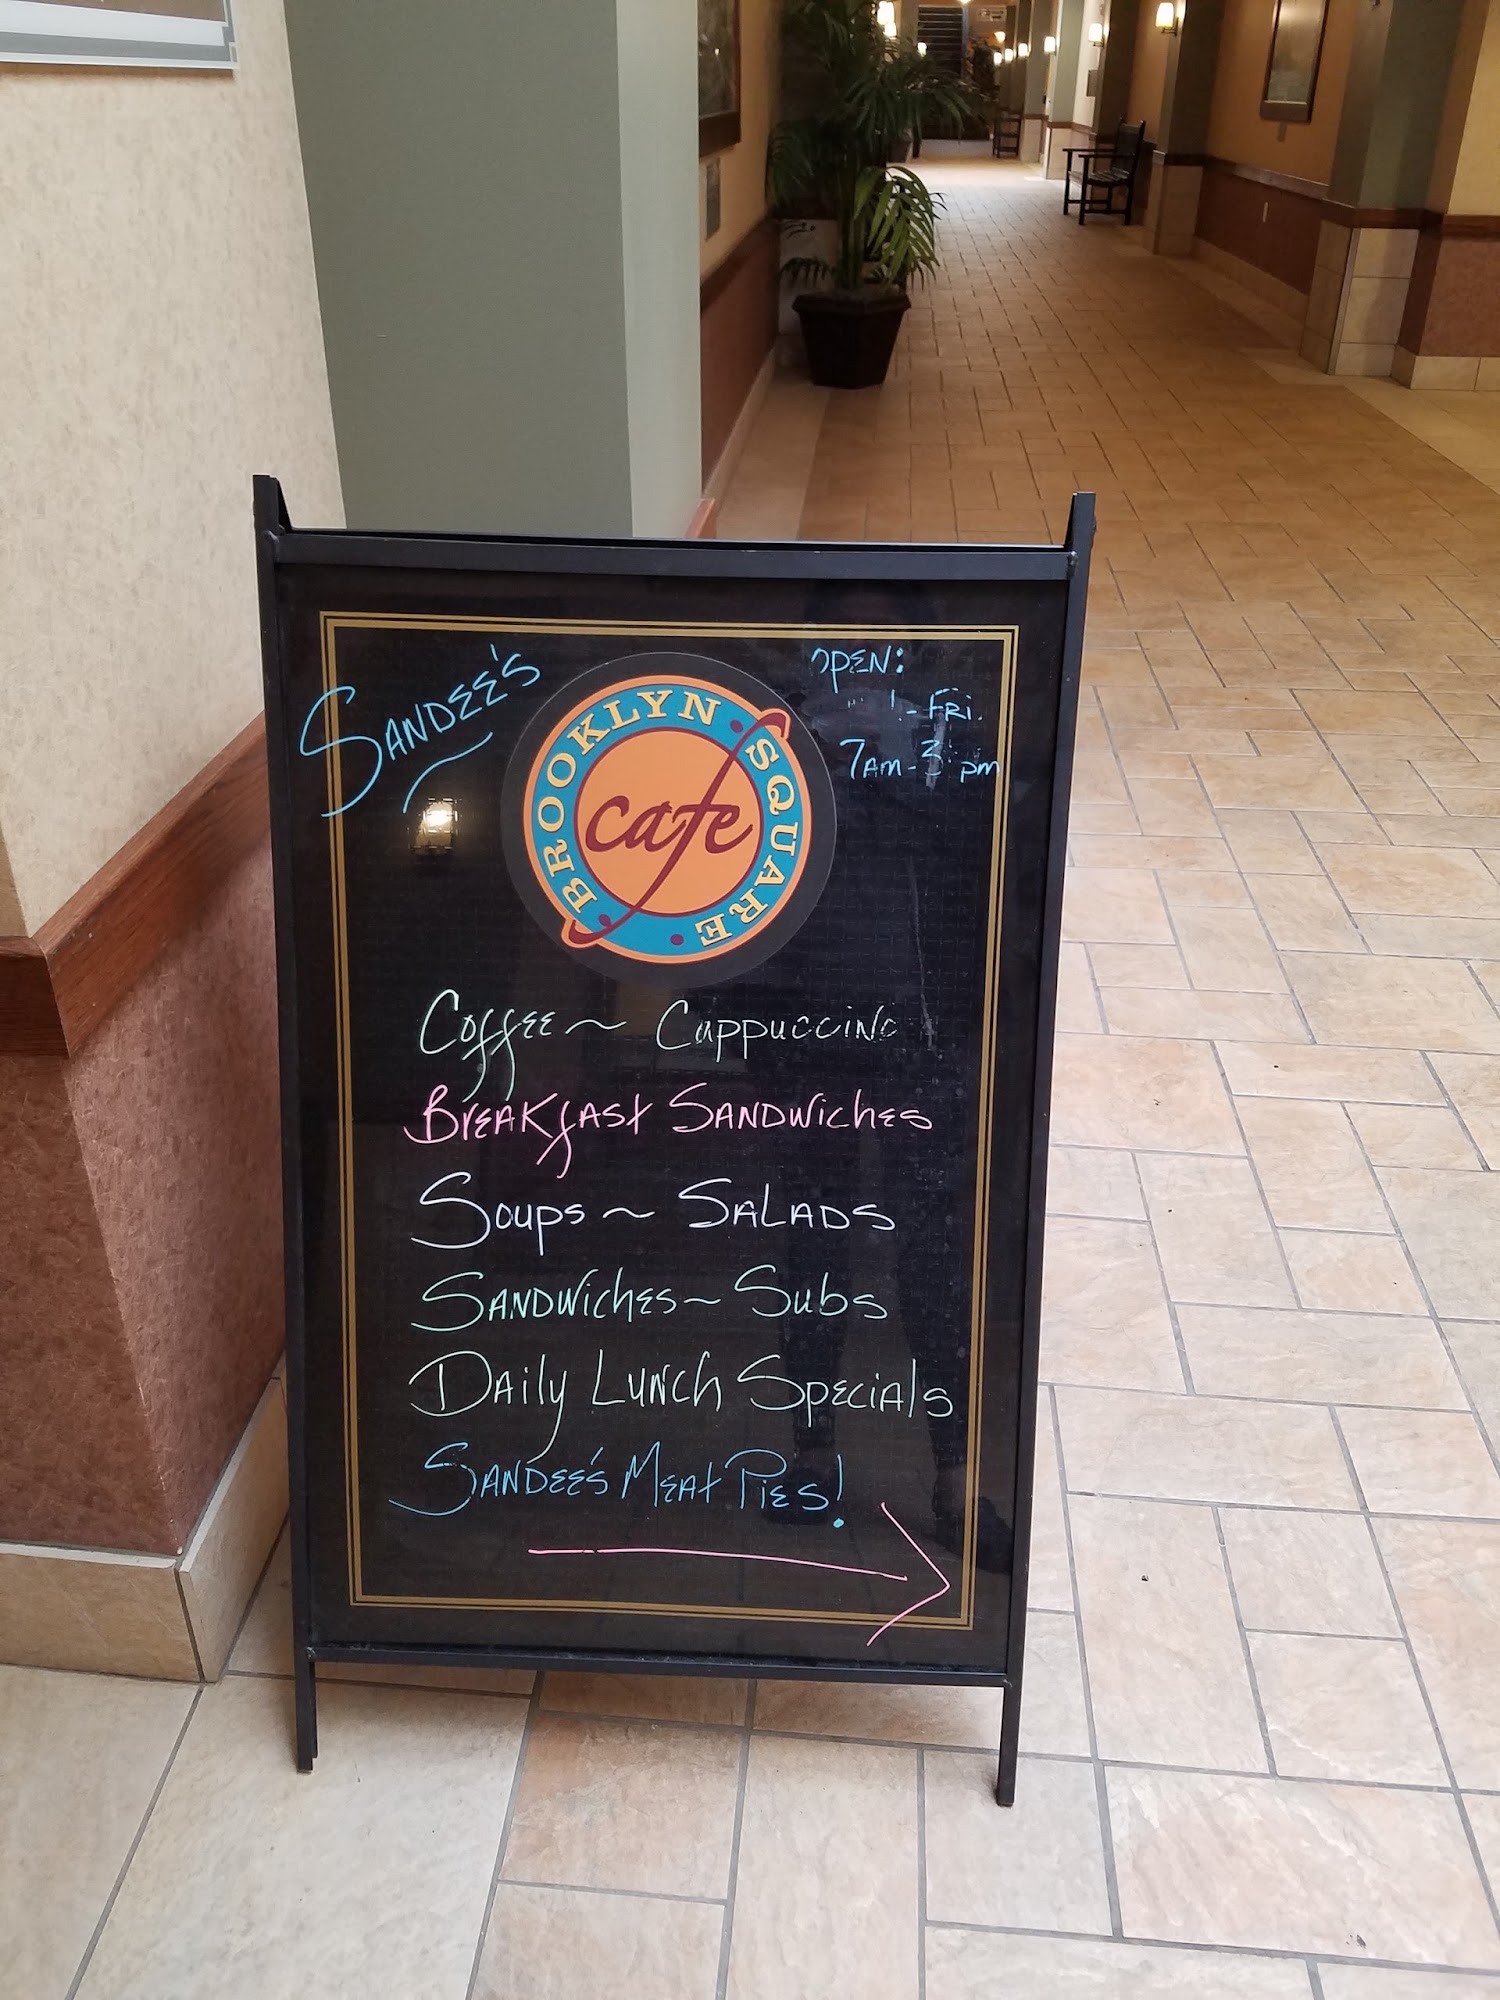 SANDEE'S
BROOKLYN SQUARE
cafe
OPEN:
- FRI.
7AM - 3 pm
Coffee ~ Cappuccino
BREAKfAST SANDWiches
Soups ~ SALADS
SANDWiches ~ Subs
DAily LUNCh SpeciAls
SANDEE'S MEAt PiEs!